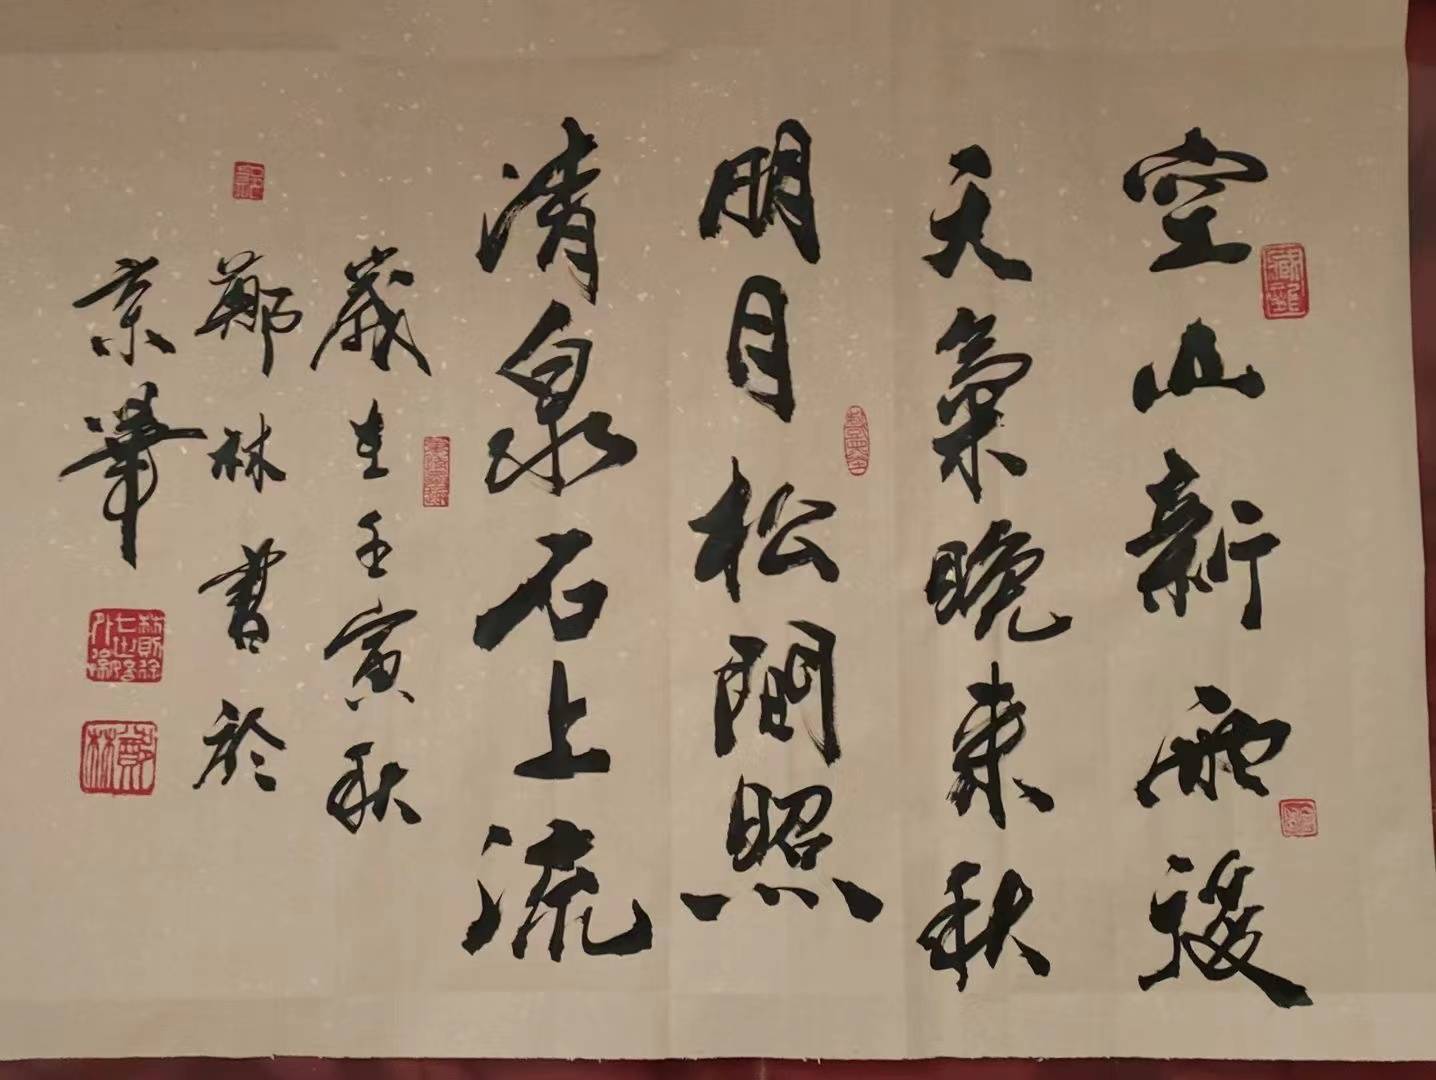 空山新雨後
天氣晚来秋
明月松間照
清泉石上流
歲在壬寅秋
鄭林書於
京華
鄭林